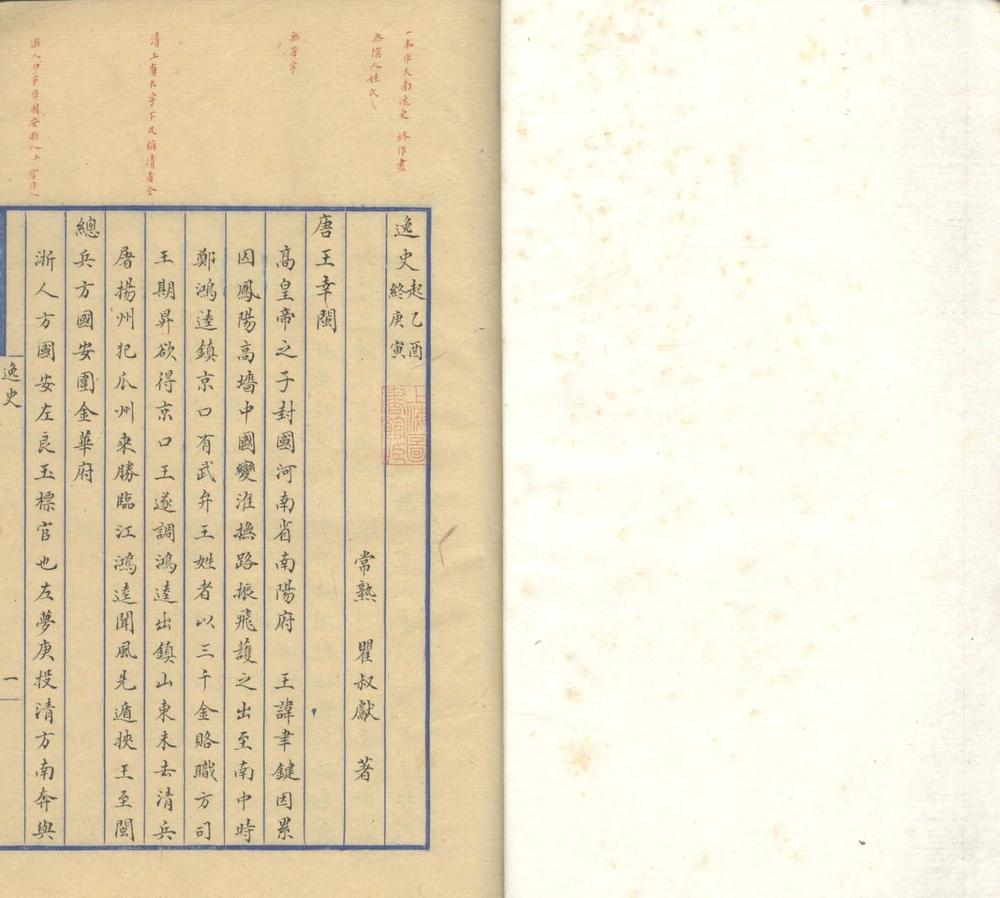 一本作天南逸史 終作盡
無撰人姓氏
無省字
清上有大字下凡稱清者仝
逸史起乙酉終庚寅
上海圖書館臧
常熟 瞿叔獻 著
唐王幸閩
高皇帝之子封國河南省南陽府 王諱聿鍵因累
囚鳳陽高墻中國變淮撫路振飛護之出至南中時
鄭鴻逵鎮京口有武弁王姓者以三千金賂職方司
王期昇欲得京口王遂調鴻逵出鎮山東未去清兵
屠揚州犯瓜州來勝臨江鴻逵聞風先遁挾王至閩
總兵方國安圍金華府
浙人方國安左良玉標官也左夢庚投清方南奔與
逸史
一